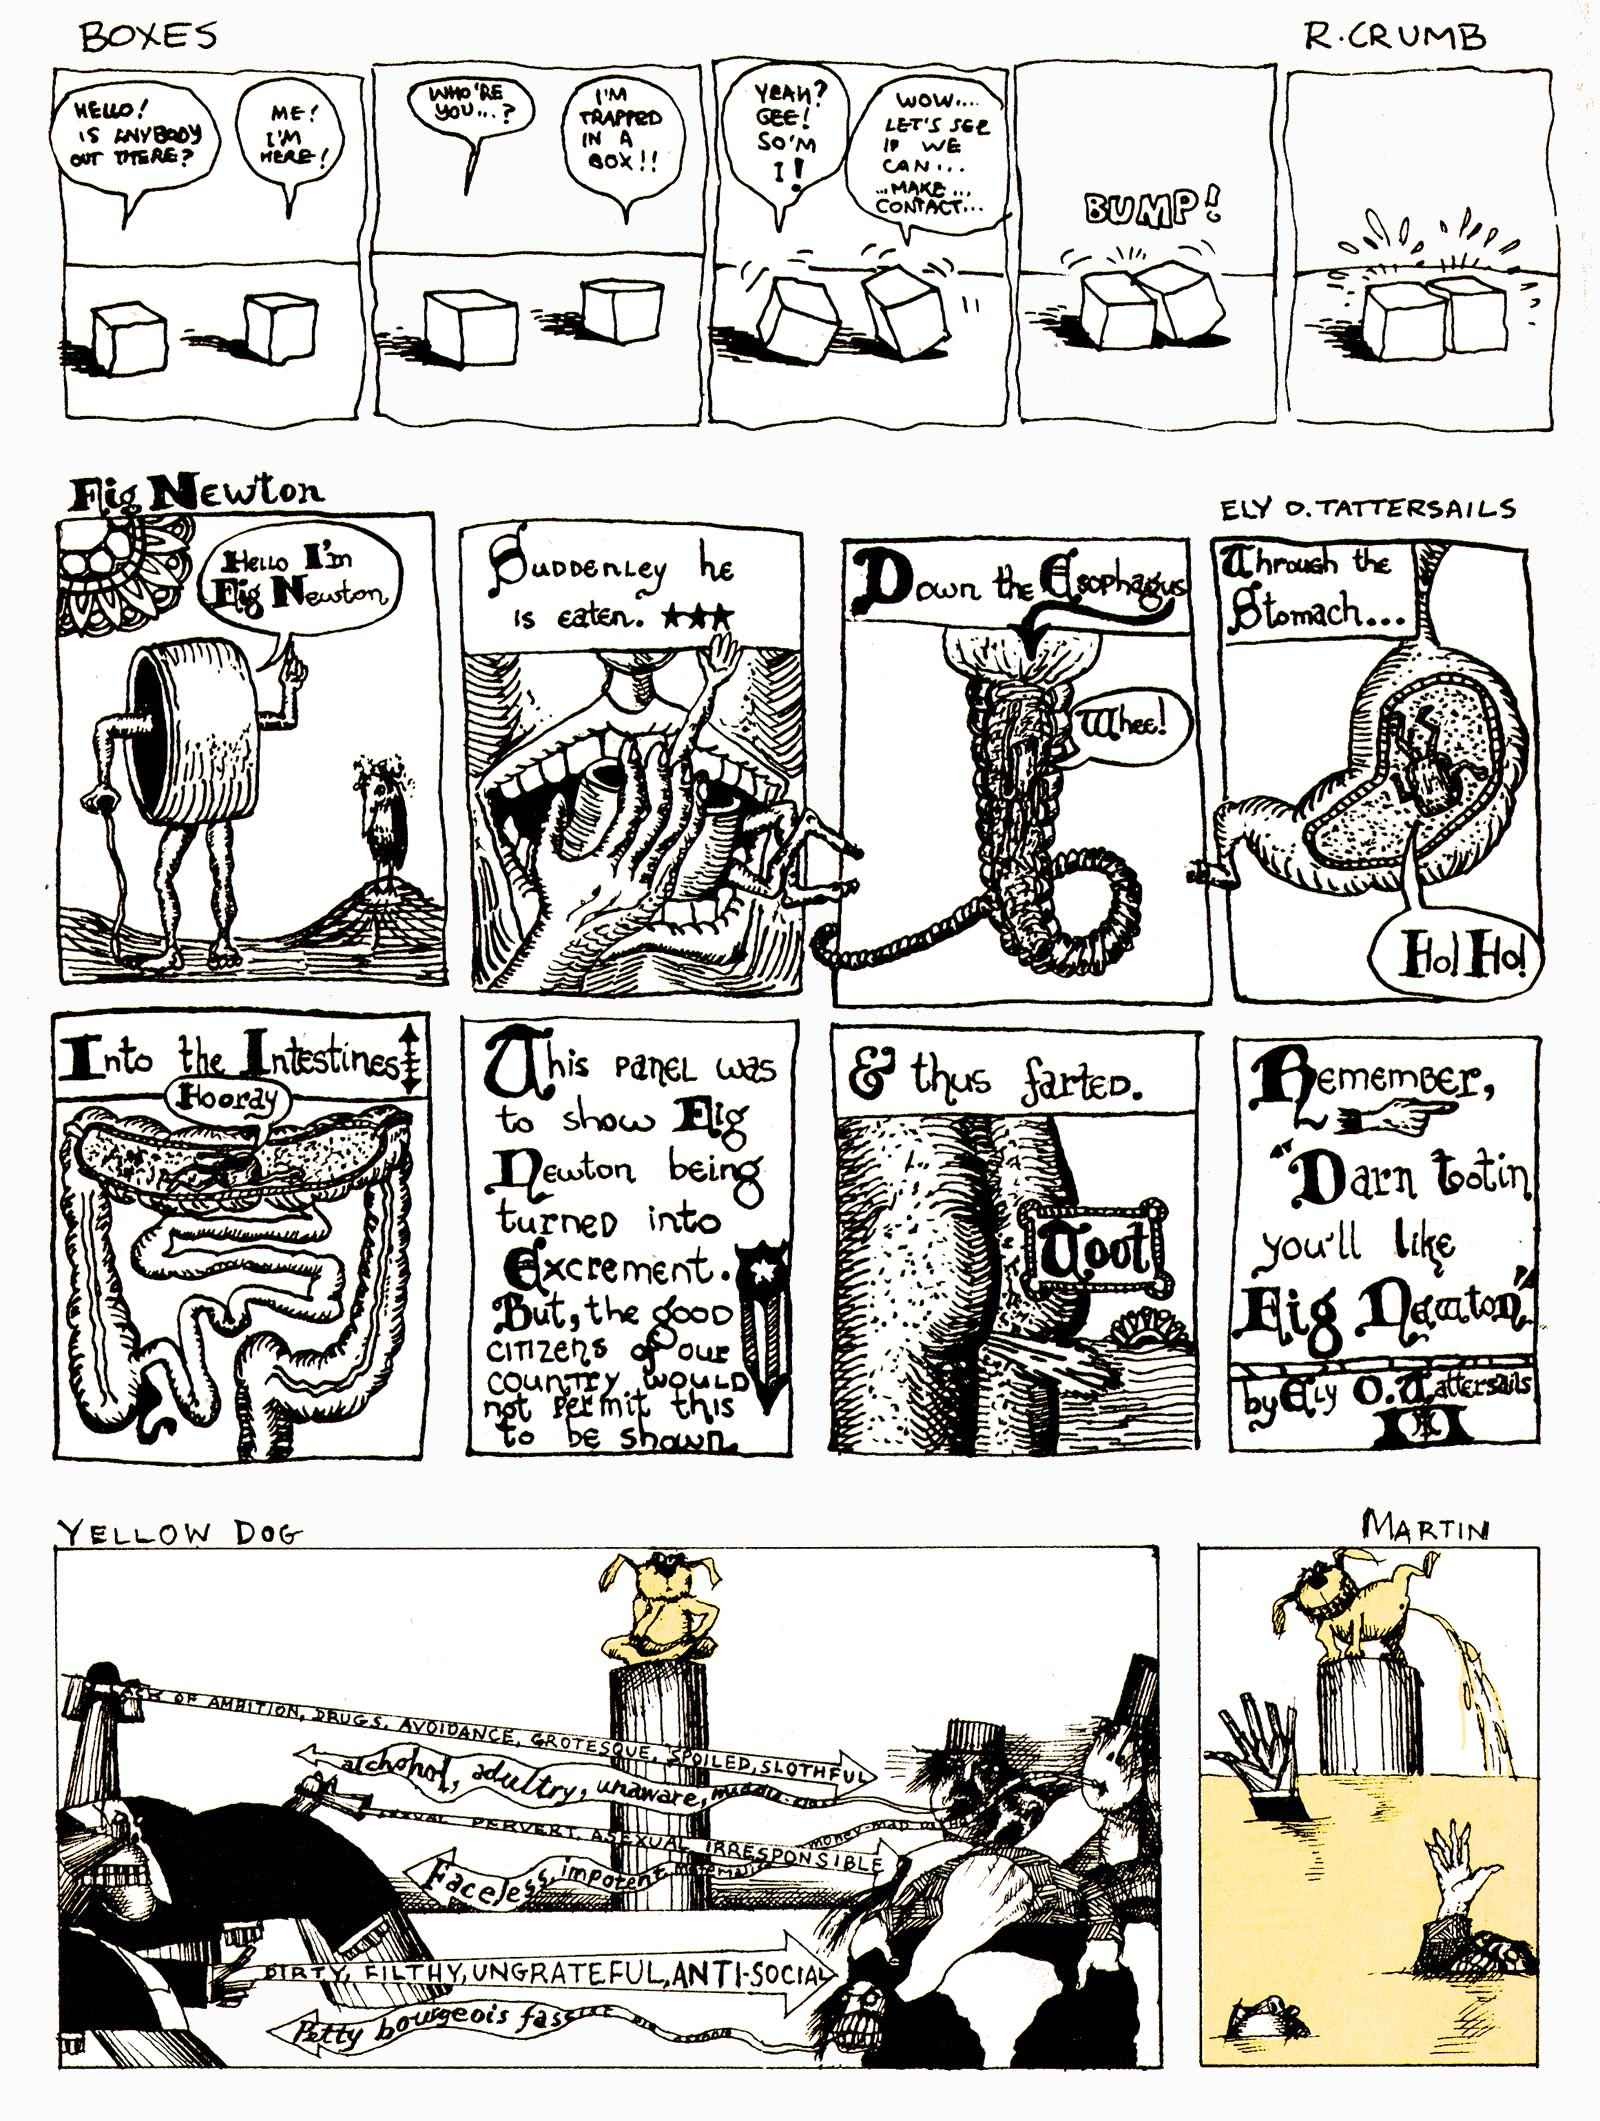 BOXES
R. CRUMB
HELLO!
IS ANYBODY
OUT THERE?
ME!
I'M
HERE!
WHO'RE
YOU...?
I'M
TRAPPED
IN A
BOX!!
YEAH?
GEE!
SO'M
I!
WOW....
LET'S SEE
IF WE
CAN...
...MAKE...
CONTACT...
BUMP!
Fig Newton
ELY O. TATTERSAILS
Hello I'm
Fig Newton
Suddenley he
is eaten. ★★★
Down the Esophagus
Whee!
Through the
Stomach...
Ho! Ho!
Into the Intestines
Hooray
This panel was
to show Fig
Newton being
turned into
Excrement.
But, the good
citizens of our
country would
not permit this
to be shown.
& thus farted.
Toot
Remember,
"Darn tootin
you'll like
Fig Newton"
by Ely O. Tattersails
YELLOW DOG
MARTIN
OF AMBITION, DRUGS, AVOIDANCE, GROTESQUE, SPOILED, SLOTHFUL
alchohol, adultry, unaware, middle-class
PERVERT, ASEXUAL IRRESPONSIBLE
money-mad
Faceless, impotent,
DIRTY, FILTHY, UNGRATEFUL, ANTI-SOCIAL
Petty bourgeois fascist